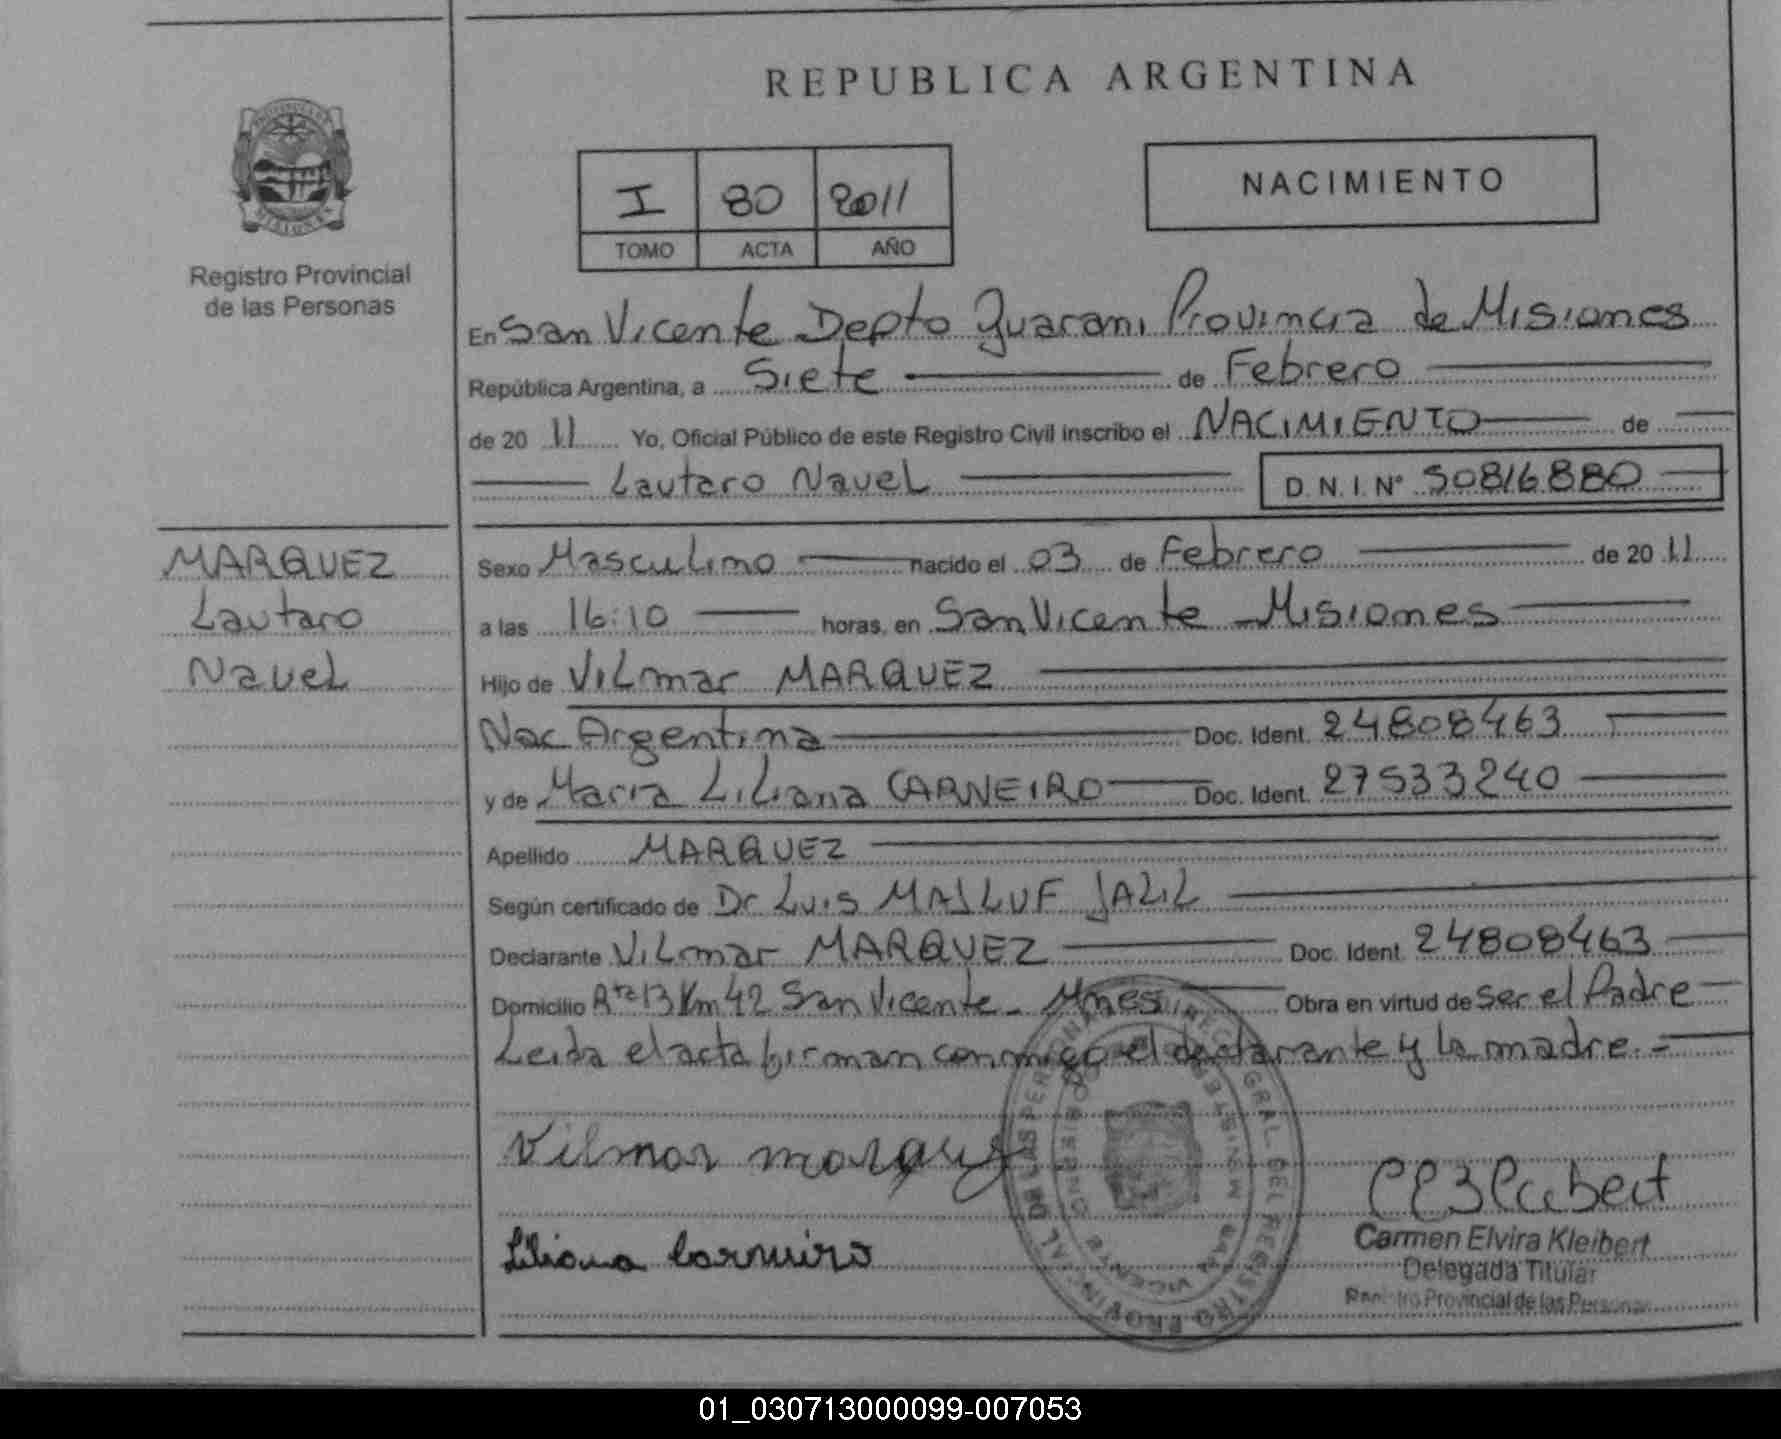 REPUBLICA ARGENTINA
I 80 2011
TOMO ACTA AÑO
NACIMIENTO
Registro Provincial
de las Personas
En San Vicente Depto Guarani Provincia de Misiones
República Argentina, a Siete de Febrero
de 20 11 Yo, Oficial Público de este Registro Civil inscribo el NACIMIENTO de
Lautaro Nauel D.N.I. Nº 50816880
MARQUEZ
Lautaro
Nauel
Sexo Masculino nacido el 03 de Febrero de 20 11
a las 16:10 horas, en San Vicente - Misiones
Hijo de Vilmar MARQUEZ
Nac Argentina Doc. Ident. 24808463
y de Maria Liliana CARNEIRO Doc. Ident. 27533240
Apellido MARQUEZ
Según certificado de Dr Luis MASLUF JALIL
Declarante Vilmar MARQUEZ Doc. Ident. 24808463
Domicilio Rta 13 Km 42 San Vicente - Mnes Obra en virtud de ser el Padre
Leida el acta firman conmigo el declarante y la madre.-
Vilmar marquez
Liliana Carneiro
Carmen Elvira Kleibert
Delegada Titular
Registro Provincial de las Personas
01_030713000099-007053